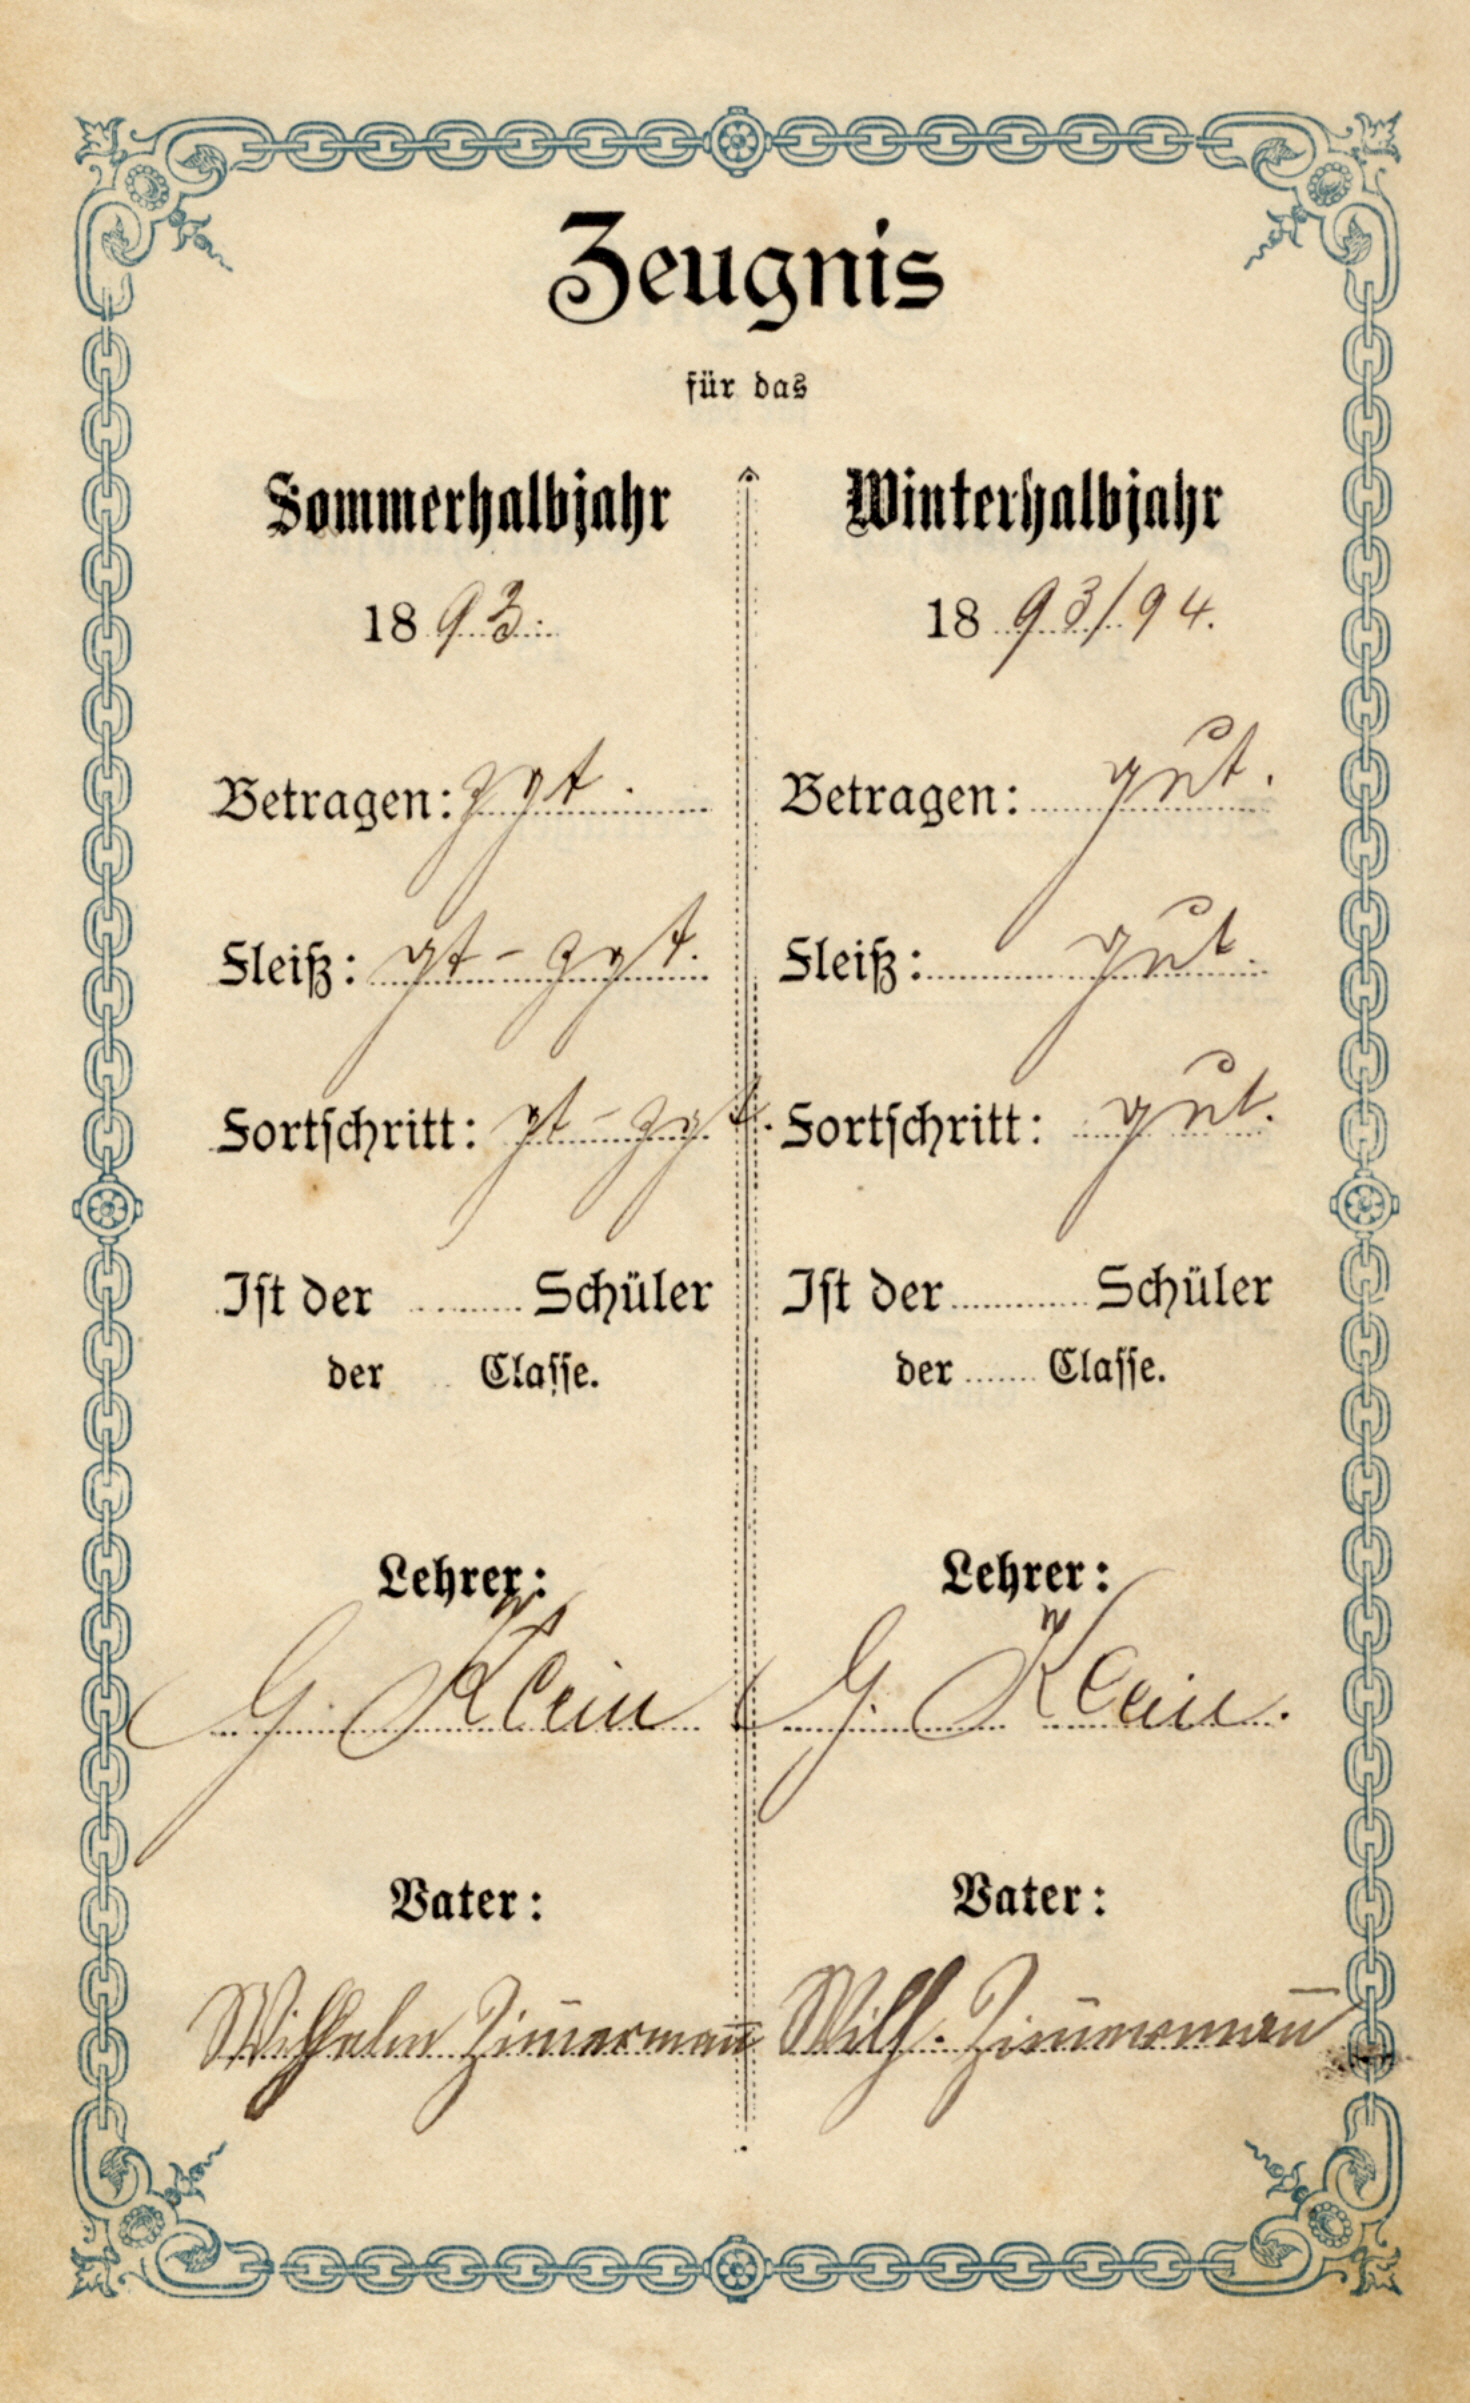 Zeugnis
für das
Sommerhalbjahr
1893.
Betragen: zgt.
Fleiß: gt - zgt.
Fortschritt: gt - zgt.
Ist der Schüler
der Classe.
Lehrer:
G. Klein
Vater:
Wilhelm Zim̄erman̄
Winterhalbjahr
1893/94.
Betragen: gut.
Fleiß: gut.
Fortschritt: gut.
Ist der Schüler
der Classe.
Lehrer:
G. Klein.
Vater:
Wilh. Zim̄erman̄